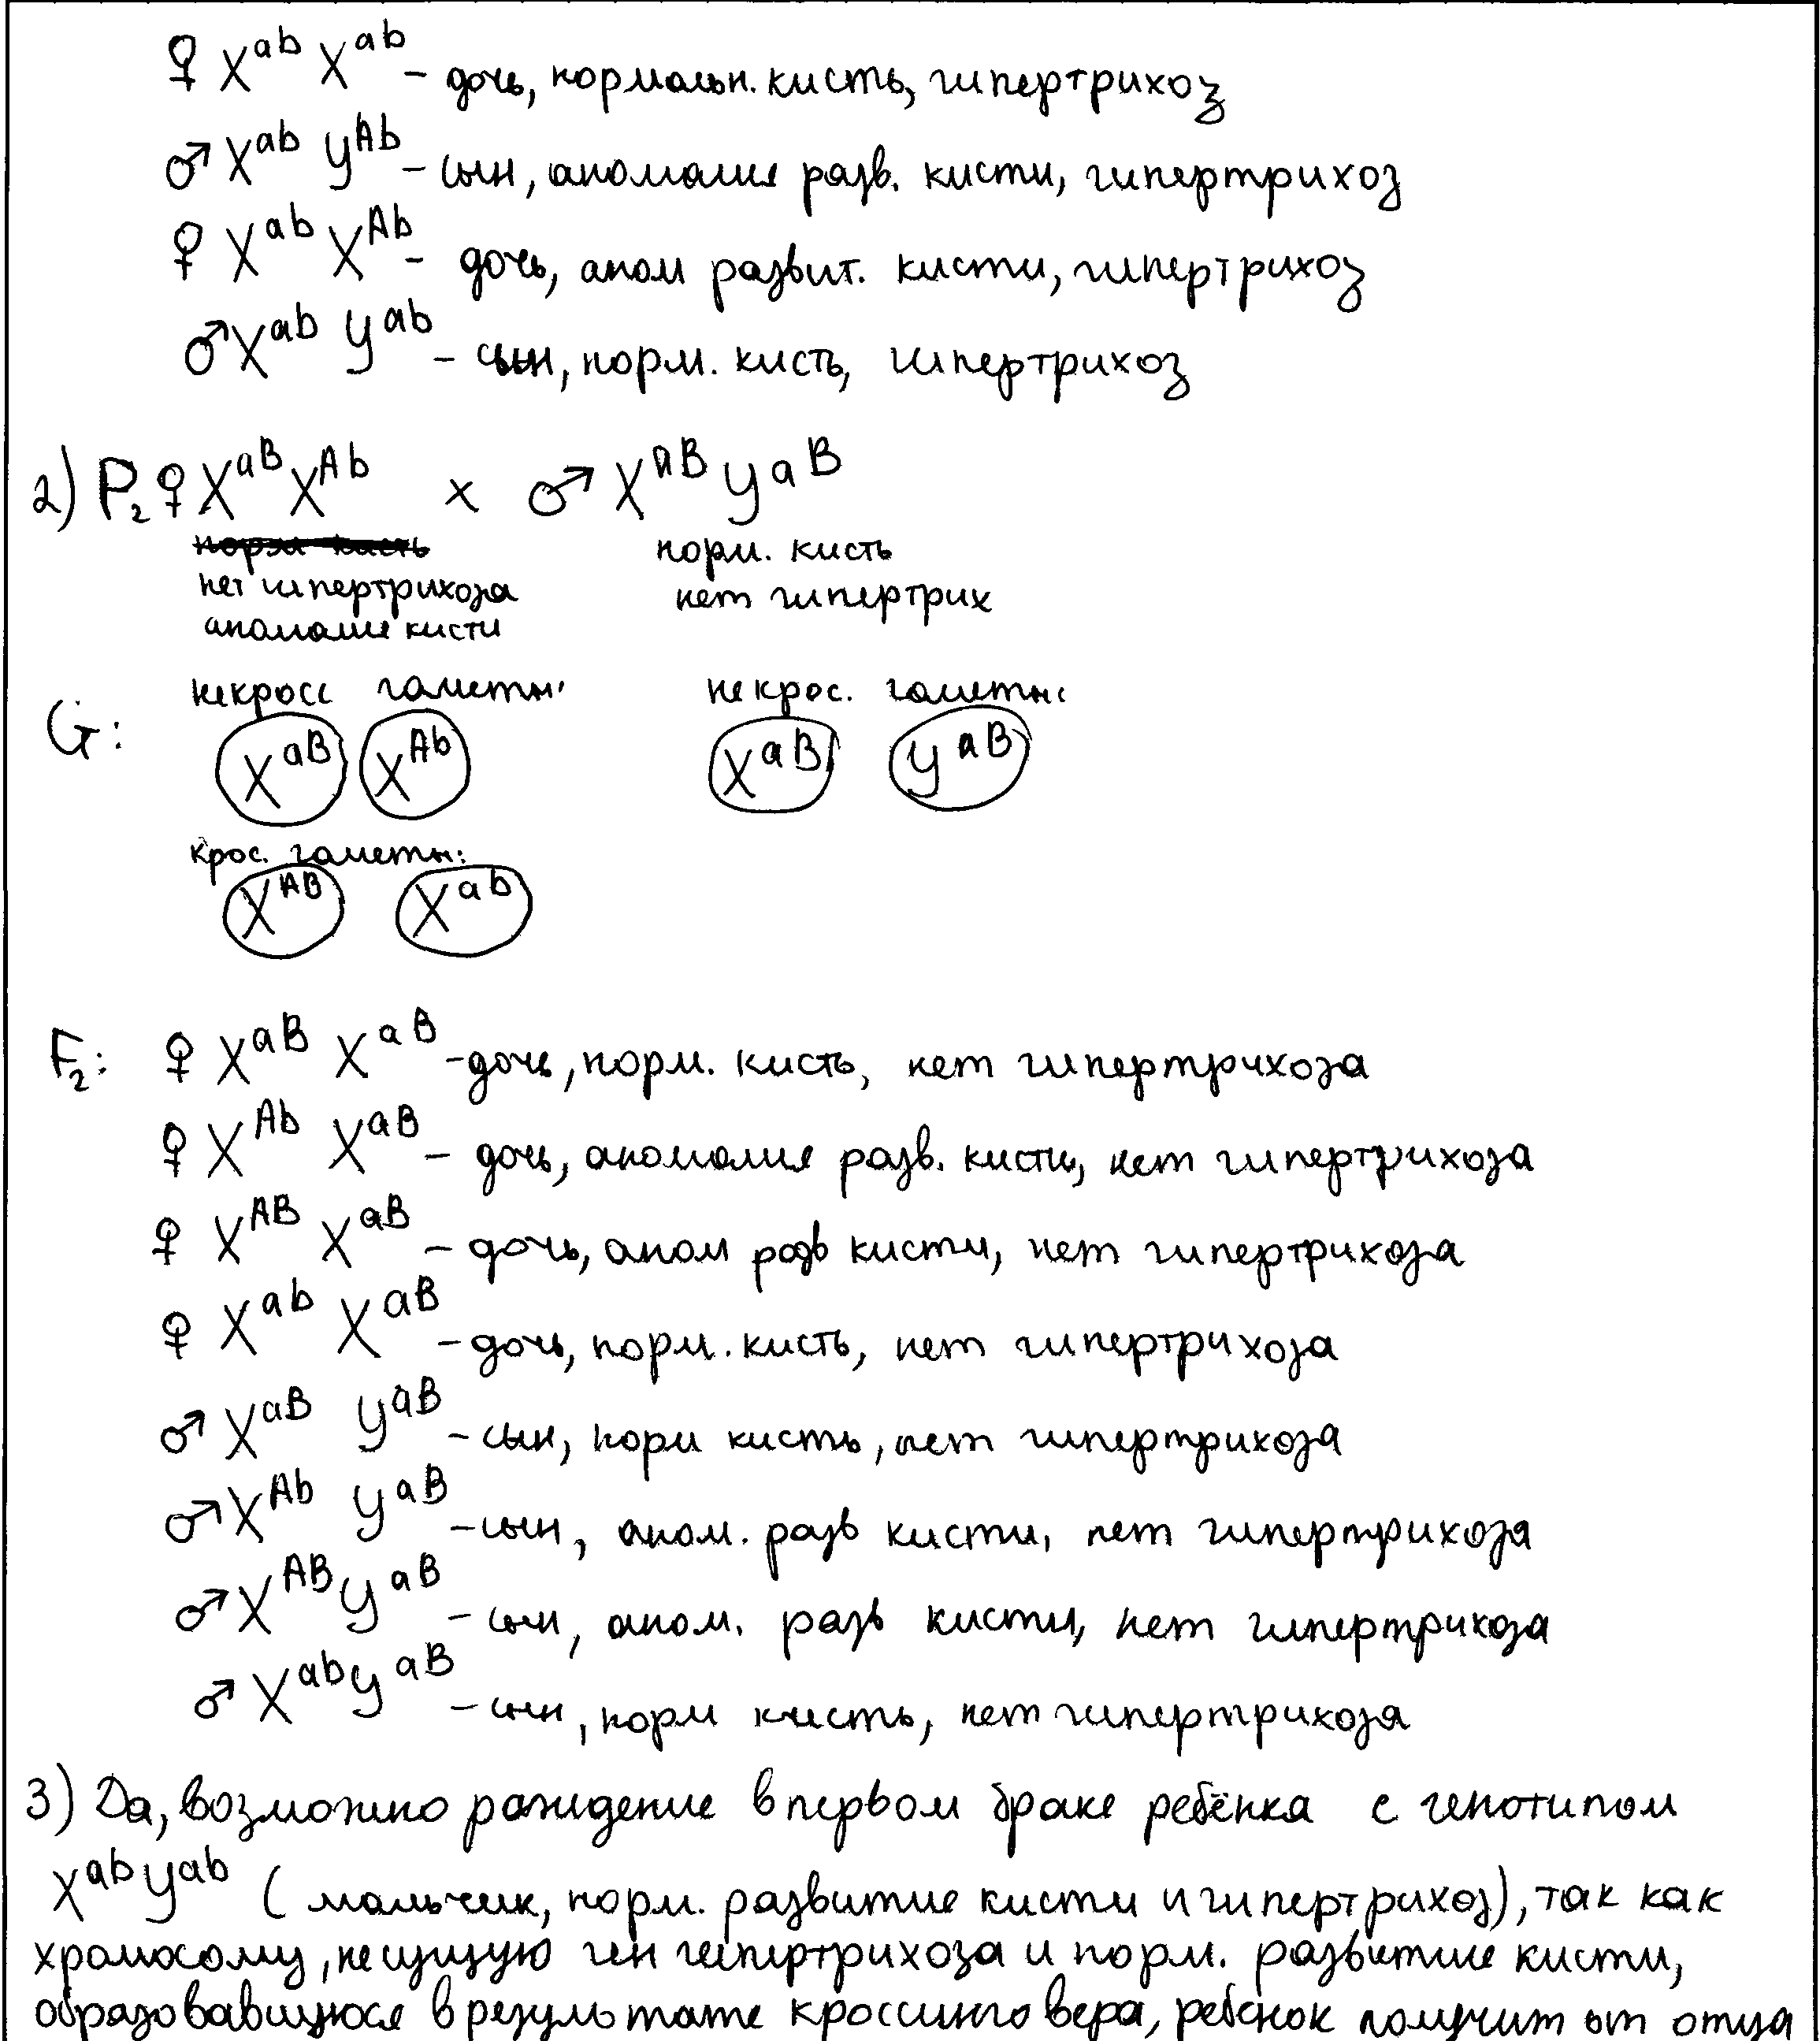 ♀ X^ab X^ab – дочь, нормальн. кисть, гипертрихоз
♂ X^ab Y^Ab – сын, аномалия разв. кисти, гипертрихоз
♀ X^ab X^Ab – дочь, аном развит. кисти, гипертрихоз
♂ X^ab Y^ab – сын, норм. кисть, гипертрихоз
2) P₂ ♀ X^aB X^Ab x ♂ X^aB Y^aB
норм. кисть
нет гипертрихоза нет гипертрих
аномалия кисти
некросс гаметы: некрос. гаметы:
G: X^aB X^Ab X^aB Y^aB
крос. гаметы:
X^AB X^ab
F₂: ♀ X^aB X^aB – дочь, норм. кисть, нет гипертрихоза
♀ X^Ab X^aB – дочь, аномалия разв. кисти, нет гипертрихоза
♀ X^AB X^aB – дочь, аном разв кисти, нет гипертрихоза
♀ X^ab X^aB – дочь, норм. кисть, нет гипертрихоза
♂ X^aB Y^aB – сын, норм кисть, нет гипертрихоза
♂ X^Ab Y^aB – сын, аном. разв кисти, нет гипертрихоза
♂ X^AB Y^aB – сын, аном. разв кисти, нет гипертрихоза
♂ X^ab Y^aB – сын, норм кисть, нет гипертрихоза
3) Да, возможно рождение в первом браке ребёнка с генотипом
X^ab Y^ab (мальчик, норм. развитие кисти и гипертрихоз), так как
хромосому, несущую ген гипертрихоза и норм. развитие кисти,
образовавшуюся в результате кроссинговера, ребёнок получит от отца